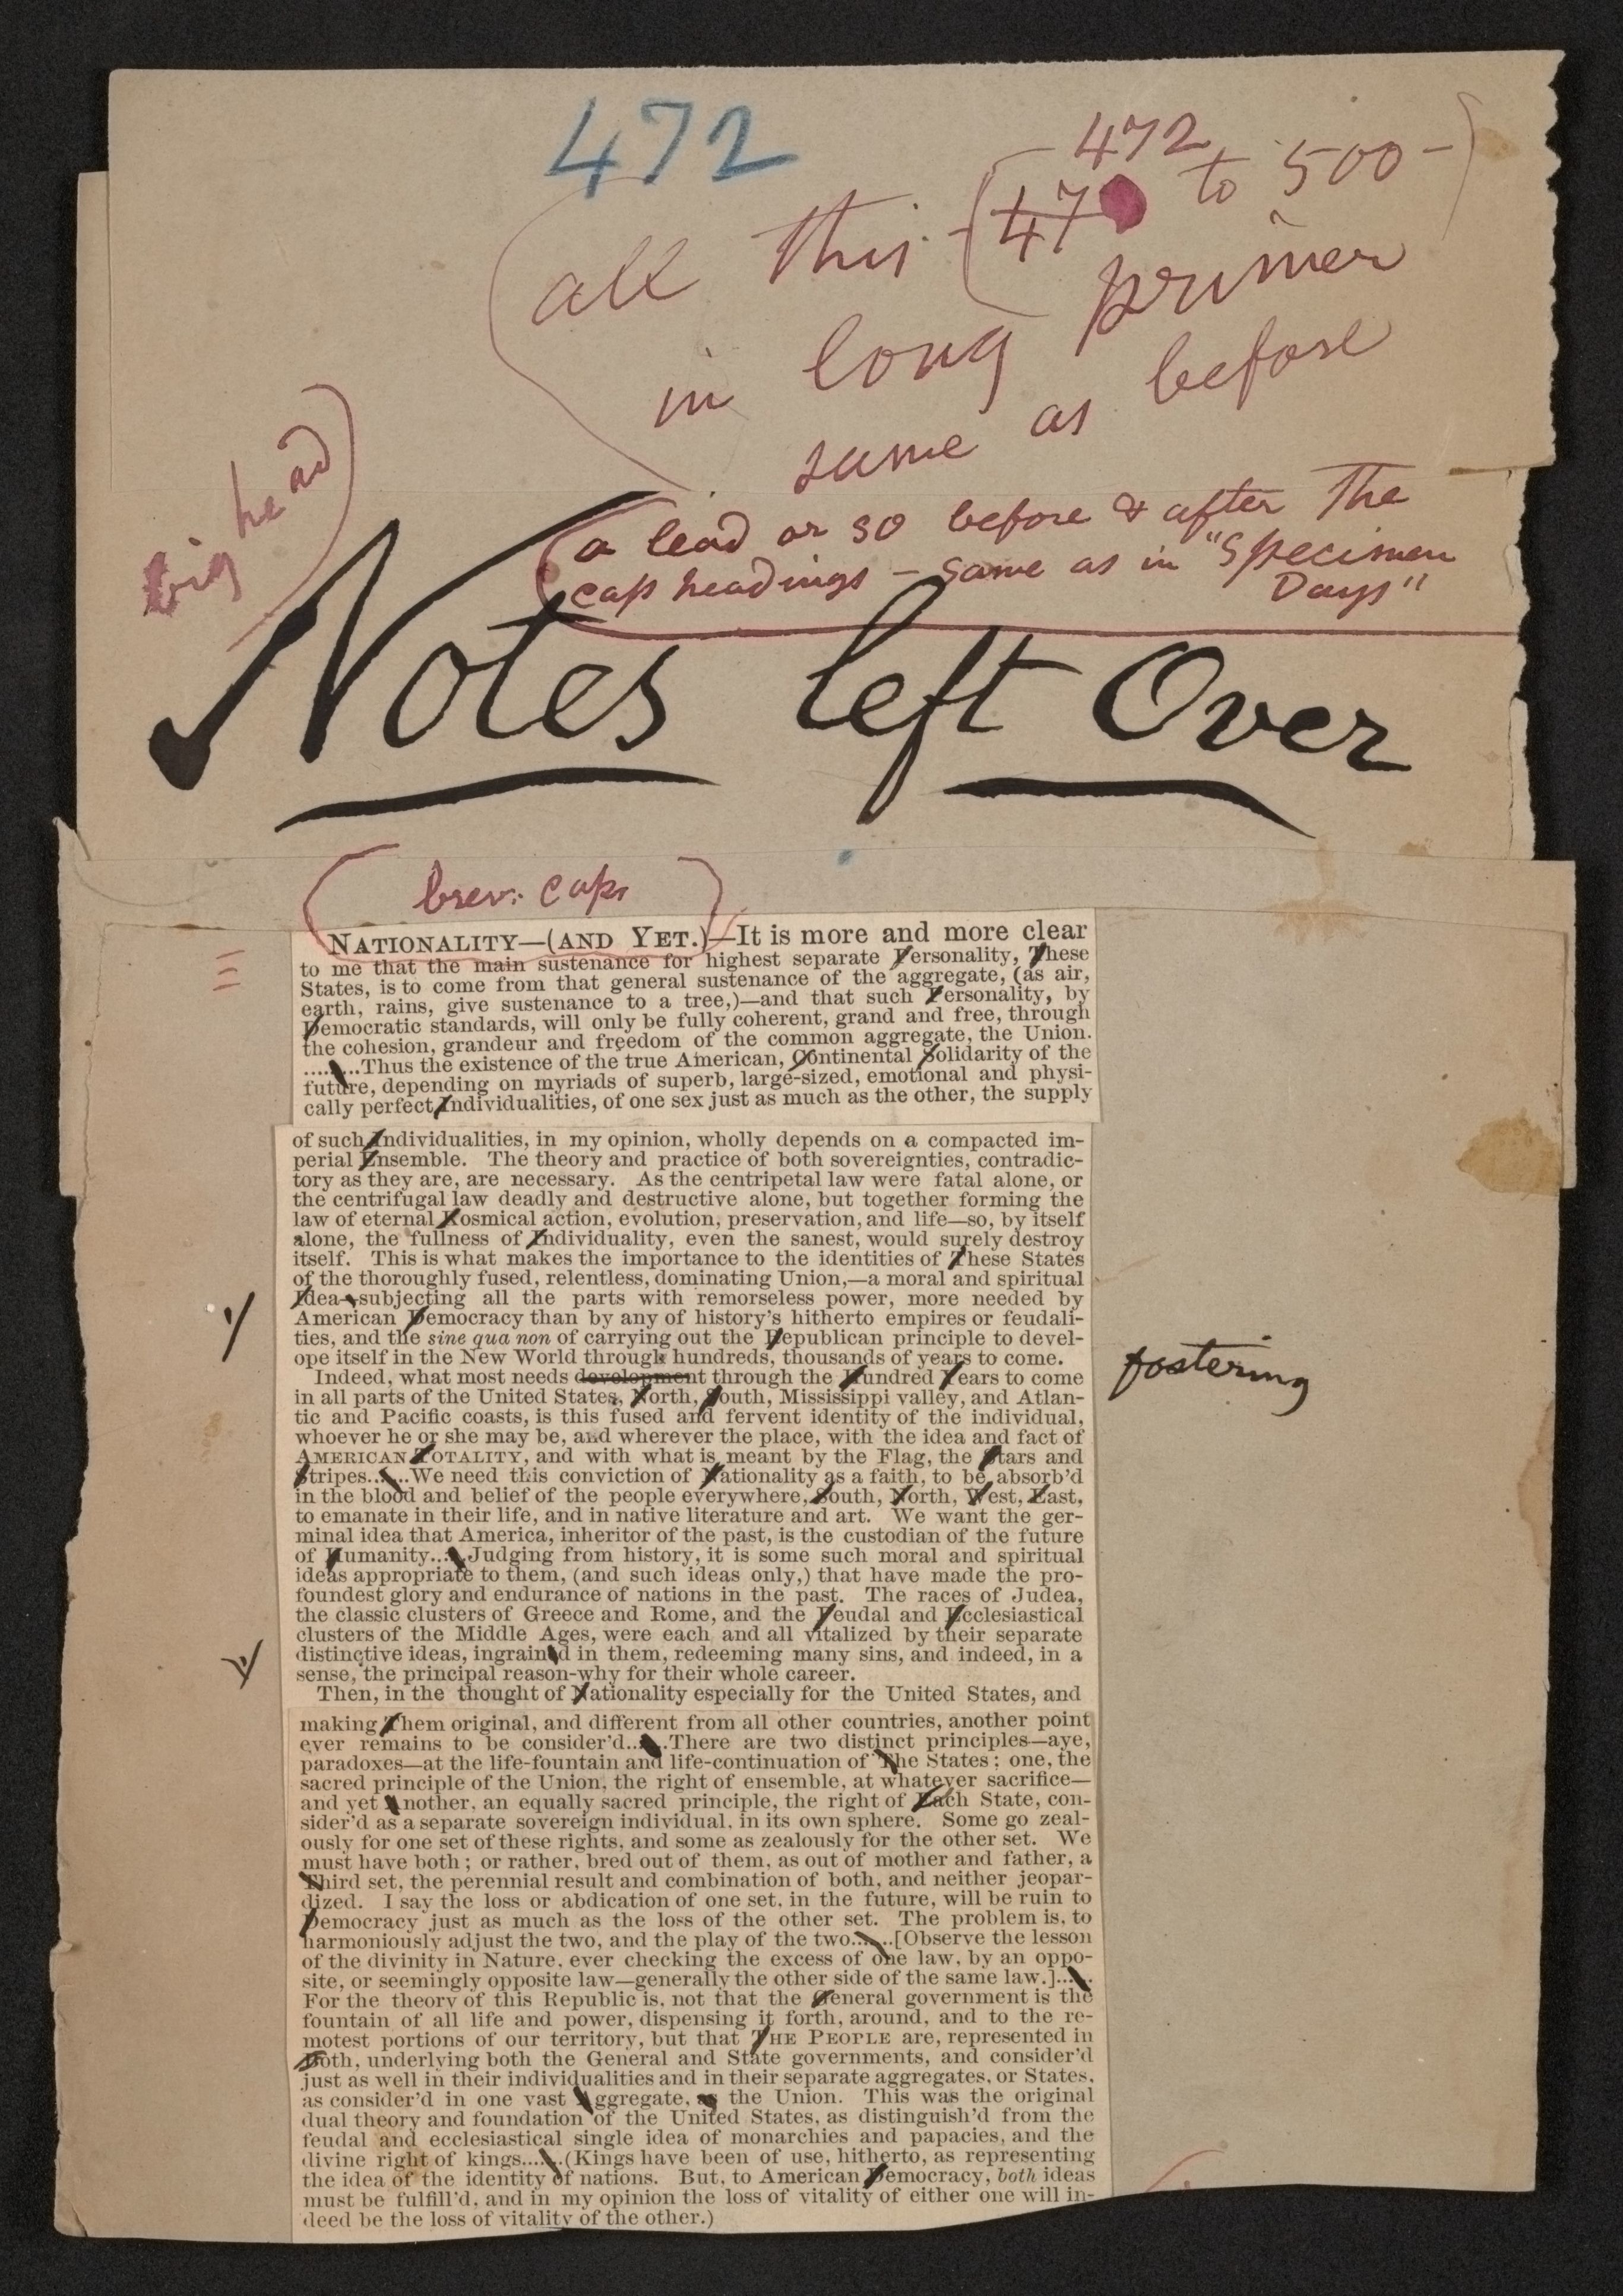 472
472
(all this - (47 to 500 - )
in long primer
same as before
big head)
(a lead or so before & after The
cap headings — same as in "Specimen
Days"
Notes left Over
(brev: caps)
NATIONALITY—(AND YET.)—It is more and more clear
to me that the main sustenance for highest separate Personality, These
States, is to come from that general sustenance of the aggregate, (as air,
earth, rains, give sustenance to a tree,)—and that such Personality, by
Democratic standards, will only be fully coherent, grand and free, through
the cohesion, grandeur and freedom of the common aggregate, the Union.
........Thus the existence of the true American, Continental Solidarity of the
future, depending on myriads of superb, large-sized, emotional and physi-
cally perfect Individualities, of one sex just as much as the other, the supply
of such Individualities, in my opinion, wholly depends on a compacted im-
perial Ensemble. The theory and practice of both sovereignties, contradic-
tory as they are, are necessary. As the centripetal law were fatal alone, or
the centrifugal law deadly and destructive alone, but together forming the
law of eternal Kosmical action, evolution, preservation, and life—so, by itself
alone, the fullness of Individuality, even the sanest, would surely destroy
itself. This is what makes the importance to the identities of These States
of the thoroughly fused, relentless, dominating Union,—a moral and spiritual
Idea—subjecting all the parts with remorseless power, more needed by
American Democracy than by any of history's hitherto empires or feudali-
ties, and the sine qua non of carrying out the Republican principle to devel-
ope itself in the New World through hundreds, thousands of years to come.
Indeed, what most needs development through the Hundred Years to come
fostering
in all parts of the United States, North, South, Mississippi valley, and Atlan-
tic and Pacific coasts, is this fused and fervent identity of the individual,
whoever he or she may be, and wherever the place, with the idea and fact of
AMERICAN TOTALITY, and with what is meant by the Flag, the Stars and
Stripes......We need this conviction of Nationality as a faith, to be absorb'd
in the blood and belief of the people everywhere, South, North, West, East,
to emanate in their life, and in native literature and art. We want the ger-
minal idea that America, inheritor of the past, is the custodian of the future
of Humanity......Judging from history, it is some such moral and spiritual
ideas appropriate to them, (and such ideas only,) that have made the pro-
foundest glory and endurance of nations in the past. The races of Judea,
the classic clusters of Greece and Rome, and the Feudal and Ecclesiastical
clusters of the Middle Ages, were each and all vitalized by their separate
distinctive ideas, ingrained in them, redeeming many sins, and indeed, in a
sense, the principal reason-why for their whole career.
Then, in the thought of Nationality especially for the United States, and
making Them original, and different from all other countries, another point
ever remains to be consider'd......There are two distinct principles—aye,
paradoxes—at the life-fountain and life-continuation of The States; one, the
sacred principle of the Union, the right of ensemble, at whatever sacrifice—
and yet Another, an equally sacred principle, the right of Each State, con-
sider'd as a separate sovereign individual, in its own sphere. Some go zeal-
ously for one set of these rights, and some as zealously for the other set. We
must have both; or rather, bred out of them, as out of mother and father, a
Third set, the perennial result and combination of both, and neither jeopar-
dized. I say the loss or abdication of one set, in the future, will be ruin to
Democracy just as much as the loss of the other set. The problem is, to
harmoniously adjust the two, and the play of the two......[Observe the lesson
of the divinity in Nature, ever checking the excess of one law, by an oppo-
site, or seemingly opposite law—generally the other side of the same law.]......
For the theory of this Republic is, not that the General government is the
fountain of all life and power, dispensing it forth, around, and to the re-
motest portions of our territory, but that THE PEOPLE are, represented in
Both, underlying both the General and State governments, and consider'd
just as well in their individualities and in their separate aggregates, or States,
as consider'd in one vast Aggregate, as the Union. This was the original
dual theory and foundation of the United States, as distinguish'd from the
feudal and ecclesiastical single idea of monarchies and papacies, and the
divine right of kings......(Kings have been of use, hitherto, as representing
the idea of the identity of nations. But, to American Democracy, both ideas
must be fulfill'd, and in my opinion the loss of vitality of either one will in-
deed be the loss of vitality of the other.)